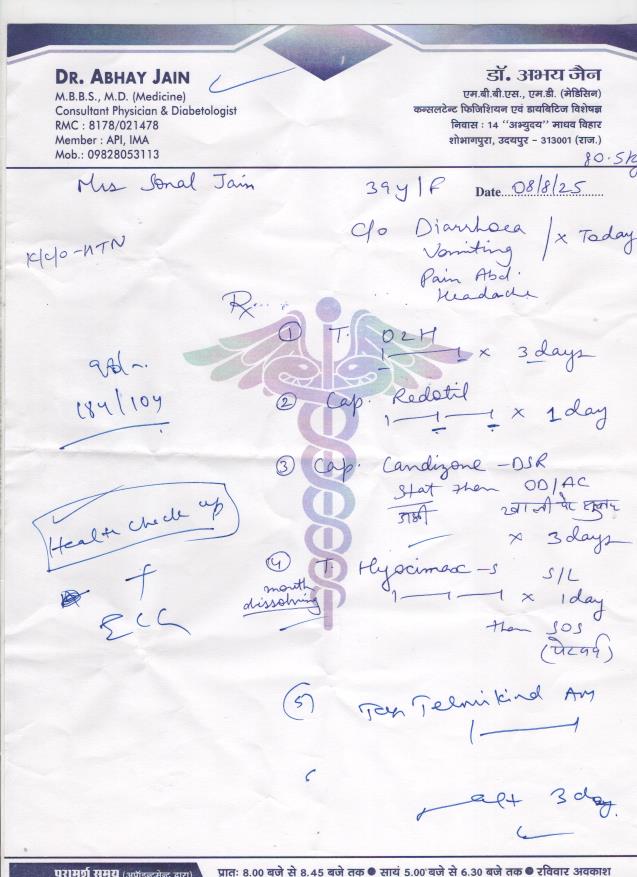 DR. ABHAY JAIN
M.B.B.S., M.D. (Medicine)
Consultant Physician & Diabetologist
RMC : 8178/021478
Member : API, IMA
Mob.: 09828053113
डॉ. अभय जैन
एम.बी.बी.एस., एम.डी. (मेडिसिन)
कन्सलटेन्ट फिजिशियन एवं डायबिटिज विशेषज्ञ
निवास : 14 "अभ्युदय" माधव विहार
शोभागपुरा, उदयपुर - 313001 (राज.)
80.5kg
Mrs Sonal Jain 39y/F Date 08/8/25
K/C/O-HTN
c/o Diarrhoea
Vomiting / x Today
Pain Abd.
Headache
Rx
① T. O2H
x 3 days
184/104
② Cap. Redotil
x 1 day
③ Cap. Candizone-DSR
Stat then OD/AC
अभी खाली पेट सुबह
x 3 days
Health check up
+
ECG
④ T. Hyocimax-S S/L
mouth dissolving
x 1day
then SOS
(पेट दर्द)
⑤ Telmikind AM
3 day
परामर्श समय (अपॉइन्टमेन्ट द्वारा) प्रातः 8.00 बजे से 8.45 बजे तक ● सायं 5.00 बजे से 6.30 बजे तक ● रविवार अवकाश